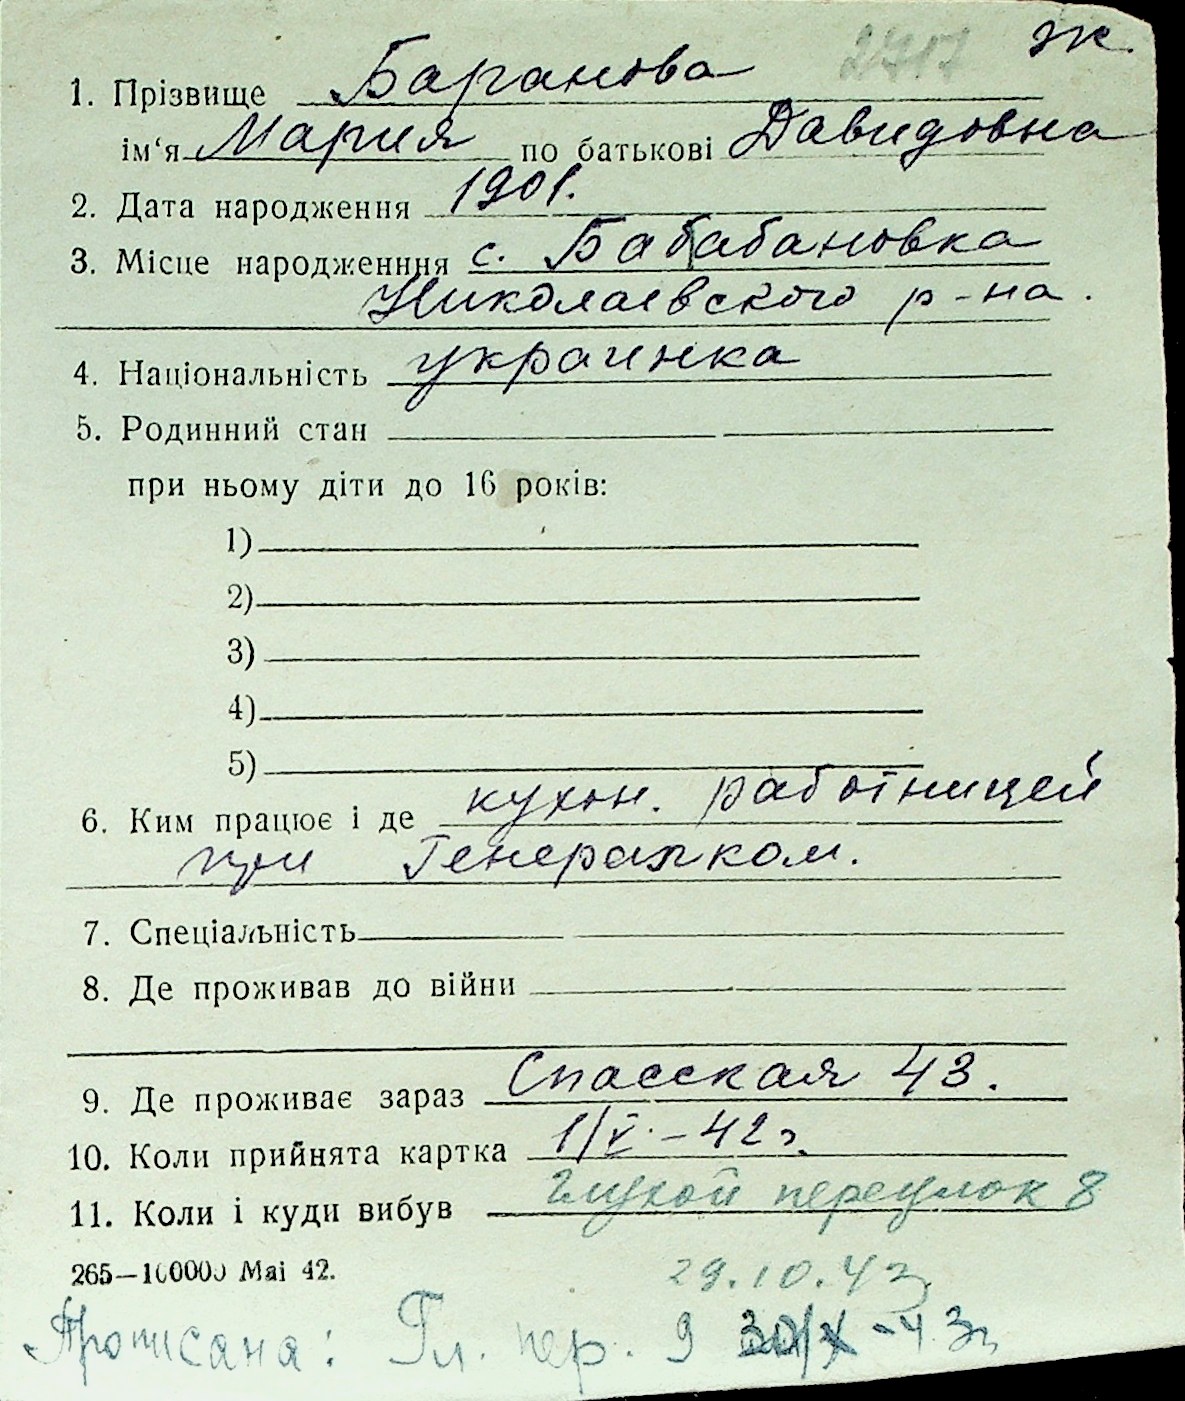 2717 ж.
1. Прізвище Баранова
ім‘я Мария по батькові Давидовна
2. Дата народження 1901.
3. Місце народженння с. Бабабановка
Николаевского р-на.
4. Національність украинка
5. Родинний стан
при ньому діти до 16 років:
1)
2)
3)
4)
5)
6. Ким працює і де кухон. работницей
при Генералком.
7. Спеціальність
8. Де проживав до війни
9. Де проживає зараз Спасская 43.
10. Коли прийнята картка 1/V.-42 г.
11. Коли і куди вибув Глухой переулок 8
265—100000 Mai 42.
29.10.43
Прописана: Гл. пер. 9 30/X-43г